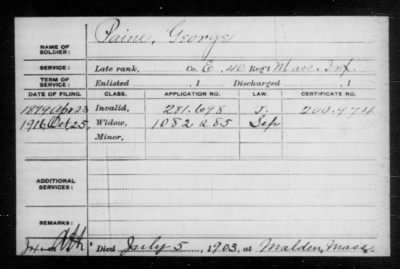 NAME OF SOLDIER: Paine, George
SERVICE: Late rank, Co. E, 40 Reg't Mass. Inf.
TERM OF SERVICE: Enlisted , 1 Discharged , 1
DATE OF FILING. CLASS. APPLICATION NO. LAW. CERTIFICATE NO.
1879 Apr 23 Invalid, 281.698 J. 200.974
1916 Oct 25, Widow, 1082 285
Minor,
ADDITIONAL SERVICES:
REMARKS:
Died July 5, 1903, at Malden, Mass.